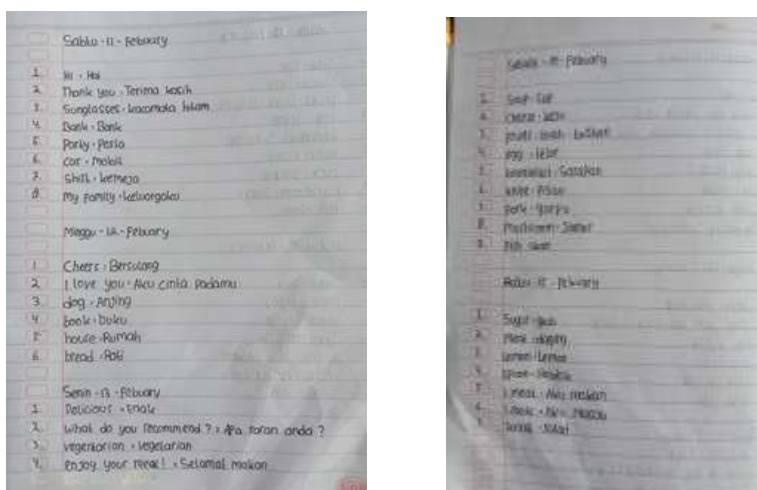 Sabtu - 11 - Febuary
1. Hi = Hai
2. Thank you = Terima kasih
3. Sunglasses = kacamata hitam
4. Bank = Bank
5. Party = Pesta
6. Car = mobil
7. Shirt = kemeja
8. My family = keluargaku
Minggu - 12 - Febuary
1. Cheers = Bersulang
2. I love you = Aku cinta padamu
3. dog = Anjing
4. book = buku
5. house = Rumah
6. bread = Roti
Senin - 13 - Febuary
1. Delicious = Enak
2. What do you recommend ? = Apa saran anda ?
3. vegetarian = vegetarian
4. enjoy your meal ! = Selamat makan
Febuary
1. Soup = Sup
2. cheese = keju
4. egg = telur
5. breakfast = Sarapan
6. knife = Pisau
7. Fork = garpu
8. Mushroom = Jamur
9. Fish
Febuary
1. Sugar = gula
2. Meat = daging
3. Lemon = Lemon
4. Spoon = Sendok
5. I eat = Aku makan
6. I cook = Aku
7. Salad